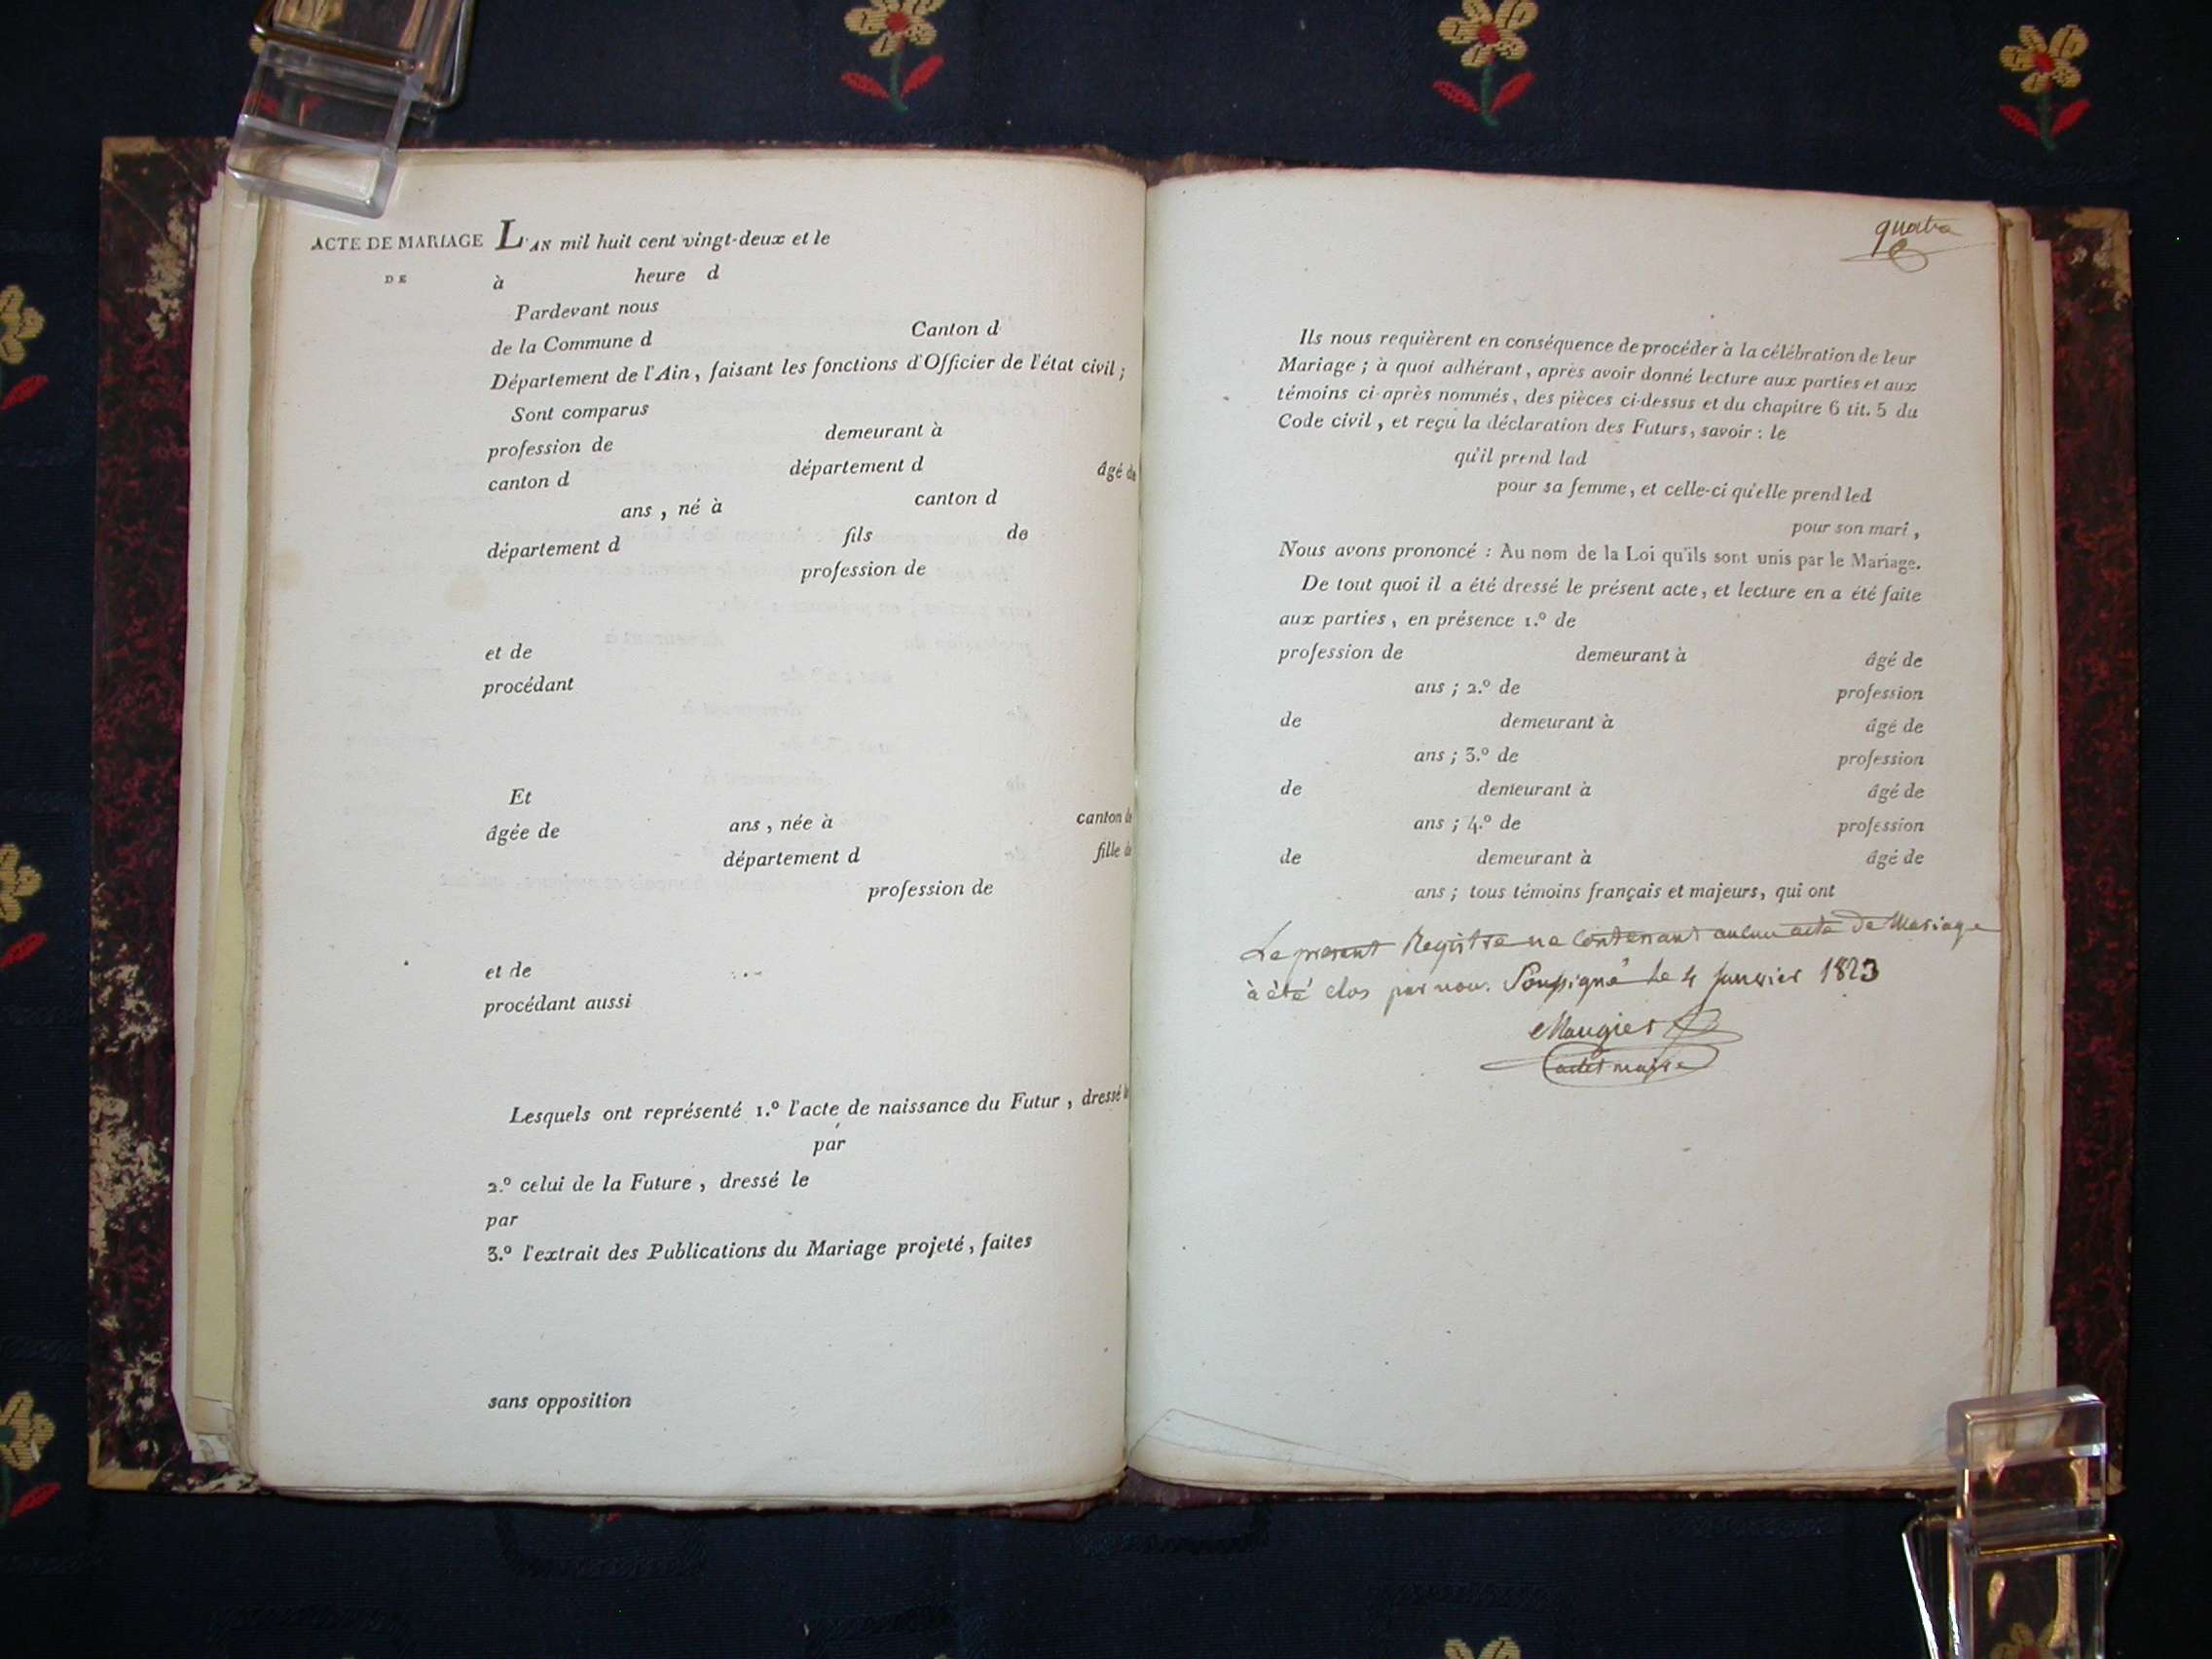 ACTE DE MARIAGE
DE
L'AN mil huit cent vingt-deux et le
à heure d
Pardevant nous
de la Commune d Canton d
Département de l'Ain, faisant les fonctions d'Officier de l'état civil ;
Sont comparus
profession de demeurant à
canton d département d âgé de
ans , né à canton d
département d fils de
profession de
et de
procédant
Et
âgée de ans , née à canton de
département d fille de
profession de
et de
procédant aussi
Lesquels ont représenté 1.º l'acte de naissance du Futur , dressé le
par
2.º celui de la Future , dressé le
par
3.º l'extrait des Publications du Mariage projeté , faites
sans opposition
quatre
Ils nous requièrent en conséquence de procéder à la célébration de leur
Mariage ; à quoi adhérant, après avoir donné lecture aux parties et aux
témoins ci-après nommés, des pièces ci-dessus et du chapitre 6 tit. 5 du
Code civil , et reçu la déclaration des Futurs, savoir : le
qu'il prend lad
pour sa femme, et celle-ci qu'elle prend led
pour son mari ,
Nous avons prononcé : Au nom de la Loi qu'ils sont unis par le Mariage.
De tout quoi il a été dressé le présent acte, et lecture en a été faite
aux parties , en présence 1.º de
profession de demeurant à âgé de
ans ; 2.º de profession
de demeurant à âgé de
ans ; 3.º de profession
de demeurant à âgé de
ans ; 4.º de profession
de demeurant à âgé de
ans ; tous témoins français et majeurs, qui ont
Le present Registre ne Contenant aucun acte de Mariage
à été clos par nou. Soussigné le 4 Janvier 1823
Maugier
adet maire